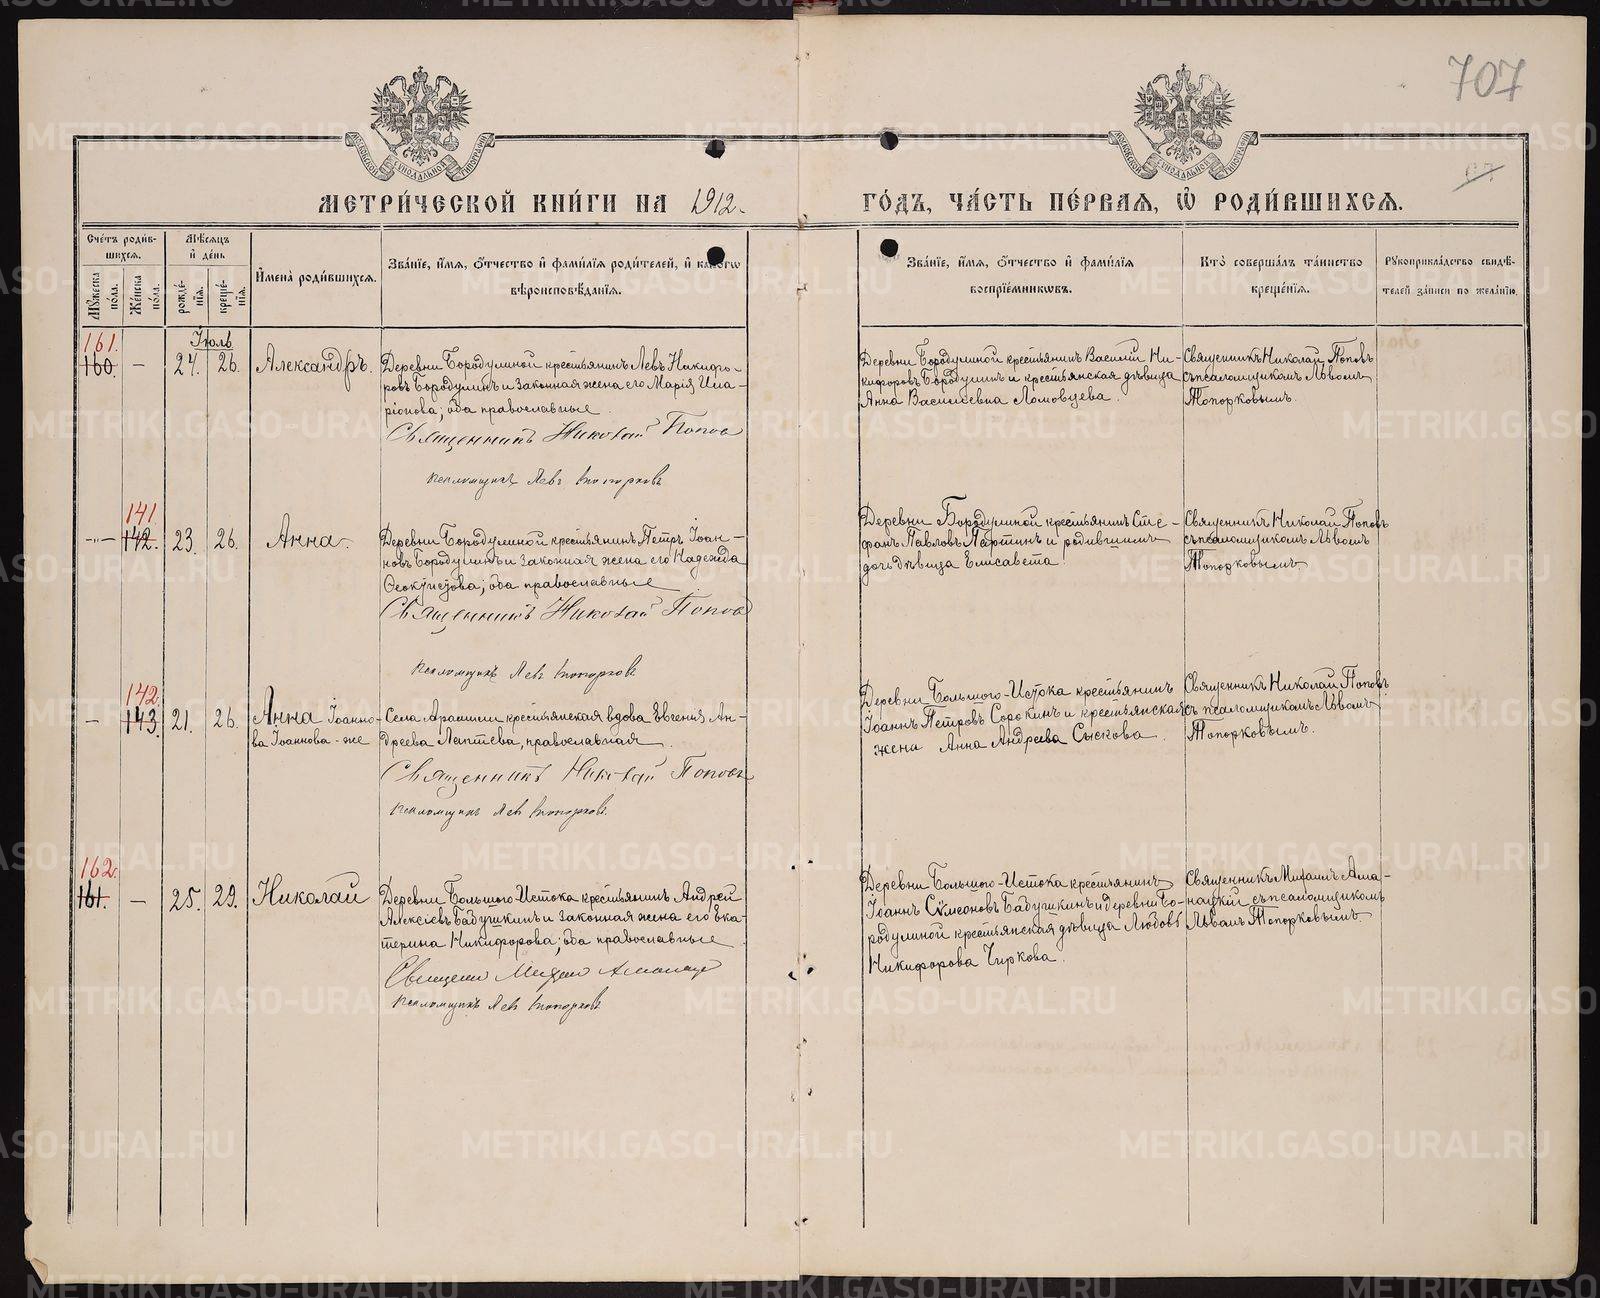 707
67
МЕТРИ́ЧЕСКОЙ КНИ́ГИ НА 1912. ГО́ДЪ, ЧА́СТЬ ПЕ́РВАЯ, Ѡ҆ РОДИ́ВШИХСЯ.
Сче́тъ роди́вшихся.
Мѣ́сяцъ и҆ де́нь
Мꙋ́жеска по́ла.
Же́нска по́ла.
рожде́нїя.
креще́нїя.
И҆мена̀ роди́вшихся.
Зва́нїе, и҆́мя, ѻ҆́тчество и҆ фами́лїя роди́телей, и҆ како́гѡ
вѣроисповѣ́данїя.
Зва́нїе, и҆́мя, ѻ҆́тчество и҆ фами́лїя
воспрїе́мникѡвъ.
Кто̀ соверша́лъ та́инство
креще́нїя.
Рꙋкоприкла́дство свидѣ́-
телей за́писи по жела́нїю.
Іюль.
161.
160. — 24. 26. Александръ.
Деревни Бородулиной крестьянинъ Левъ Никифо-
ровъ Бородулинъ и законная жена его Марія Ила-
ріонова; оба православные.
Священникъ Николай Попов
псаломщикъ Левъ Топорковъ
Деревни Бородулиной крестьянинъ Василій Ни-
кифоровъ Бородулинъ и крестьянская дѣвица
Анна Васильевна Ломовцева.
Священникъ Николай Поповъ
съ псаломщикомъ Львомъ
Топорковымъ.
141.
—"— 142. 23. 26. Анна.
Деревни Бородулиной крестьянинъ Петръ Іоан-
новъ Бородулинъ и законная жена его Надежда
Ѳеоктистова; оба православные
Священникъ Николай Попов
псаломщикъ Левъ Топорковъ
Деревни Бородулиной крестьянинъ Сте-
фанъ Павловъ Пѣртинъ и родившимъ
дочь дѣвица Елисавета.
Священникъ Николай Поповъ
съ псаломщикомъ Львомъ
Топорковымъ.
142.
— 143. 21. 26. Анна Іоанно-
ва Іоаннова-же
Села Арамили крестьянская вдова Евгенія Ан-
дреева Лаптева, православная.
Священникъ Николай Поповъ
псаломщикъ Левъ Топорковъ.
Деревни Большого-Истока крестьянинъ
Іоаннъ Петровъ Сорокинъ и крестьянская
жена Анна Андреева Сыскова.
Священникъ Николай Поповъ
съ псаломщикомъ Львомъ
Топорковымъ.
162.
161. — 25. 29. Николай
Деревни Большого-Истока крестьянинъ Андрей
Алексѣевъ Бабушкинъ и законная жена его Ека-
терина Никифорова; оба православные
Священ Михаил Аманац
псаломщикъ Левъ Топорковъ
Деревни Большого-Истока крестьянинъ
Іоаннъ Сѵмеоновъ Бабушкинъ и деревни Бо-
родулиной крестьянская дѣвица Любовь
Никифорова Чиркова.
Священникъ Михаилъ Ама-
нацкій съ псаломщикомъ
Львомъ Топорковымъ.
METRIKI.GASO-URAL.RU